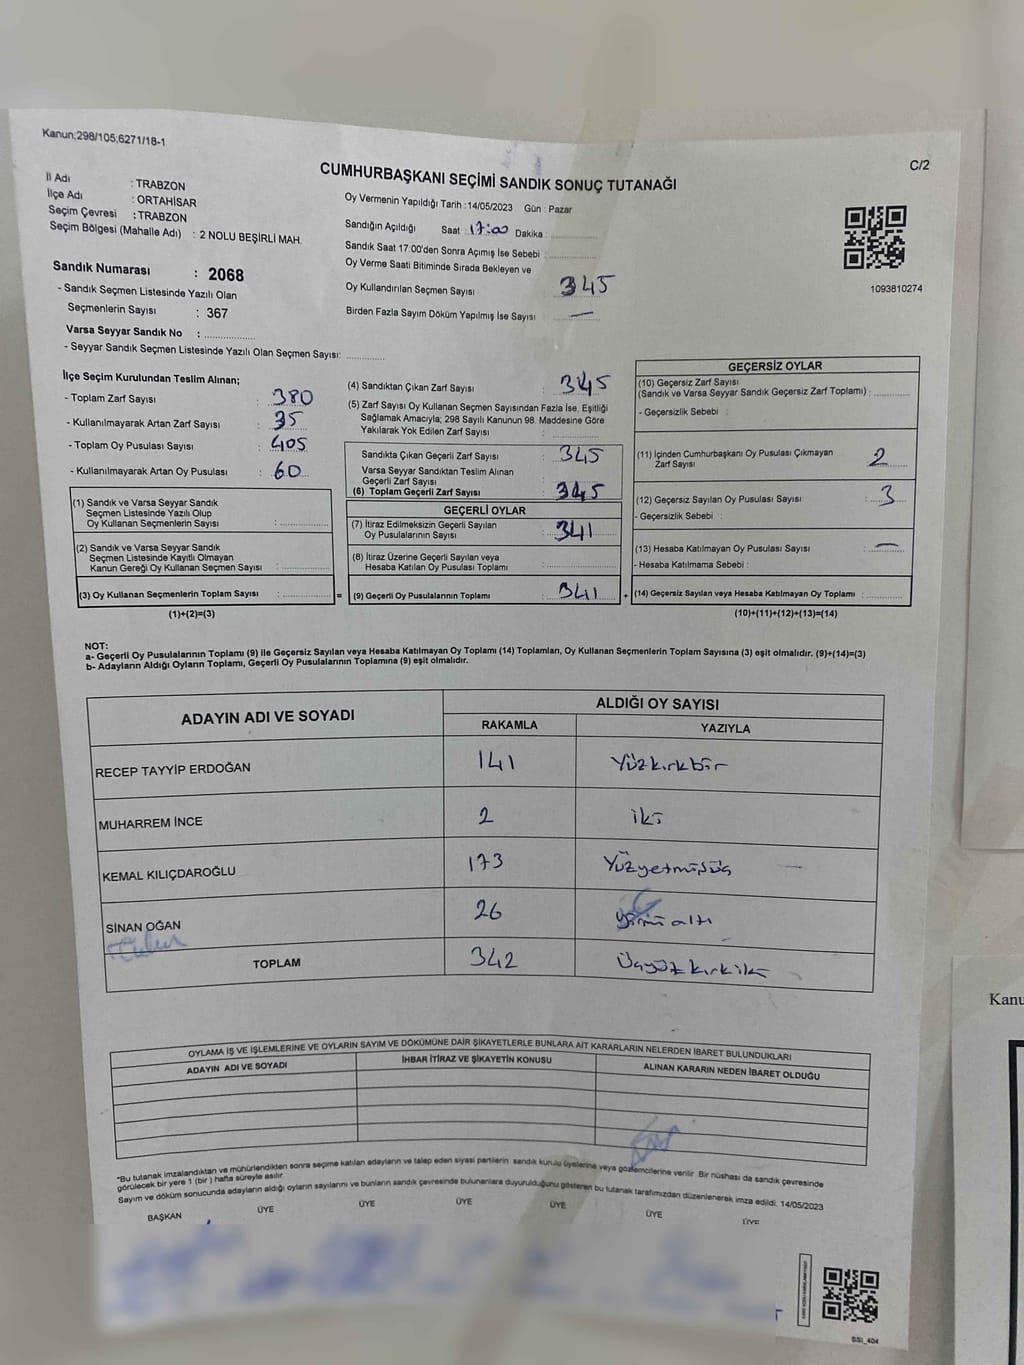 Kanun;298/105;6271/18-1
C/2
CUMHURBAŞKANI SEÇİMİ SANDIK SONUÇ TUTANAĞI
İl Adı : TRABZON
İlçe Adı : ORTAHİSAR
Seçim Çevresi : TRABZON
Seçim Bölgesi (Mahalle Adı) : 2 NOLU BEŞİRLİ MAH.
Sandık Numarası : 2068
- Sandık Seçmen Listesinde Yazılı Olan
Seçmenlerin Sayısı : 367
Varsa Seyyar Sandık No :
- Seyyar Sandık Seçmen Listesinde Yazılı Olan Seçmen Sayısı:
Oy Vermenin Yapıldığı Tarih : 14/05/2023 Gün : Pazar
Sandığın Açıldığı Saat : 17:00 Dakika :
Sandık Saat 17:00'den Sonra Açımış İse Sebebi :
Oy Verme Saati Bitiminde Sırada Bekleyen ve
Oy Kullandırılan Seçmen Sayısı 345
Birden Fazla Sayım Döküm Yapılmış İse Sayısı : —
1093810274
İlçe Seçim Kurulundan Teslim Alınan;
- Toplam Zarf Sayısı : 380
- Kullanılmayarak Artan Zarf Sayısı : 35
- Toplam Oy Pusulası Sayısı : 405
- Kullanılmayarak Artan Oy Pusulası : 60
(1) Sandık ve Varsa Seyyar Sandık
Seçmen Listesinde Yazılı Olup
Oy Kullanan Seçmenlerin Sayısı :
(2) Sandık ve Varsa Seyyar Sandık
Seçmen Listesinde Kayıtlı Olmayan
Kanun Gereği Oy Kullanan Seçmen Sayısı :
(3) Oy Kullanan Seçmenlerin Toplam Sayısı : =
(1)+(2)=(3)
(4) Sandıktan Çıkan Zarf Sayısı : 345
(5) Zarf Sayısı Oy Kullanan Seçmen Sayısından Fazla İse, Eşitliği
Sağlamak Amacıyla; 298 Sayılı Kanunun 98. Maddesine Göre
Yakılarak Yok Edilen Zarf Sayısı :
Sandıkta Çıkan Geçerli Zarf Sayısı : 345
Varsa Seyyar Sandıktan Teslim Alınan
Geçerli Zarf Sayısı :
(6) Toplam Geçerli Zarf Sayısı : 345
GEÇERLİ OYLAR
(7) İtiraz Edilmeksizin Geçerli Sayılan
Oy Pusulalarının Sayısı : 341
(8) İtiraz Üzerine Geçerli Sayılan veya
Hesaba Katılan Oy Pusulası Toplamı :
(9) Geçerli Oy Pusulalarının Toplamı : 341 +
GEÇERSİZ OYLAR
(10) Geçersiz Zarf Sayısı
(Sandık ve Varsa Seyyar Sandık Geçersiz Zarf Toplamı) :
- Geçersizlik Sebebi :
(11) İçinden Cumhurbaşkanı Oy Pusulası Çıkmayan
Zarf Sayısı : 2
(12) Geçersiz Sayılan Oy Pusulası Sayısı : 3
- Geçersizlik Sebebi :
(13) Hesaba Katılmayan Oy Pusulası Sayısı : —
- Hesaba Katılmama Sebebi :
(14) Geçersiz Sayılan veya Hesaba Katılmayan Oy Toplamı :
(10)+(11)+(12)+(13)=(14)
NOT:
a- Geçerli Oy Pusulalarının Toplamı (9) ile Geçersiz Sayılan veya Hesaba Katılmayan Oy Toplamı (14) Toplamları, Oy Kullanan Seçmenlerin Toplam Sayısına (3) eşit olmalıdır. (9)+(14)=(3)
b- Adayların Aldığı Oyların Toplamı, Geçerli Oy Pusulalarının Toplamına (9) eşit olmalıdır.
ADAYIN ADI VE SOYADI
ALDIĞI OY SAYISI
RAKAMLA YAZIYLA
RECEP TAYYİP ERDOĞAN 141 Yüzkırkbir
MUHARREM İNCE 2 iki
KEMAL KILIÇDAROĞLU 173 Yüzyetmişüç
SİNAN OĞAN 26 yirmi altı
TOPLAM 342 Üçyüzkırkiki
OYLAMA İŞ VE İŞLEMLERİNE VE OYLARIN SAYIM VE DÖKÜMÜNE DAİR ŞİKAYETLERLE BUNLARA AİT KARARLARIN NELERDEN İBARET BULUNDUKLARI
ADAYIN ADI VE SOYADI İHBAR İTİRAZ VE ŞİKAYETİN KONUSU ALINAN KARARIN NEDEN İBARET OLDUĞU
*Bu tutanak imzalandıktan ve mühürlendikten sonra seçime katılan adayların ve talep eden siyasi partilerin sandık kurulu üyelerine veya gözlemcilerine verilir. Bir nüshası da sandık çevresinde
görülecek bir yere 1 (bir) hafta süreyle asılır.
Sayım ve döküm sonucunda adayların aldığı oyların sayılarını ve bunların sandık çevresinde bulunanlara duyurulduğunu gösteren bu tutanak tarafımızdan düzenlenerek imza edildi. 14/05/2023
BAŞKAN ÜYE ÜYE ÜYE ÜYE ÜYE ÜYE
SSI_404
Kanu